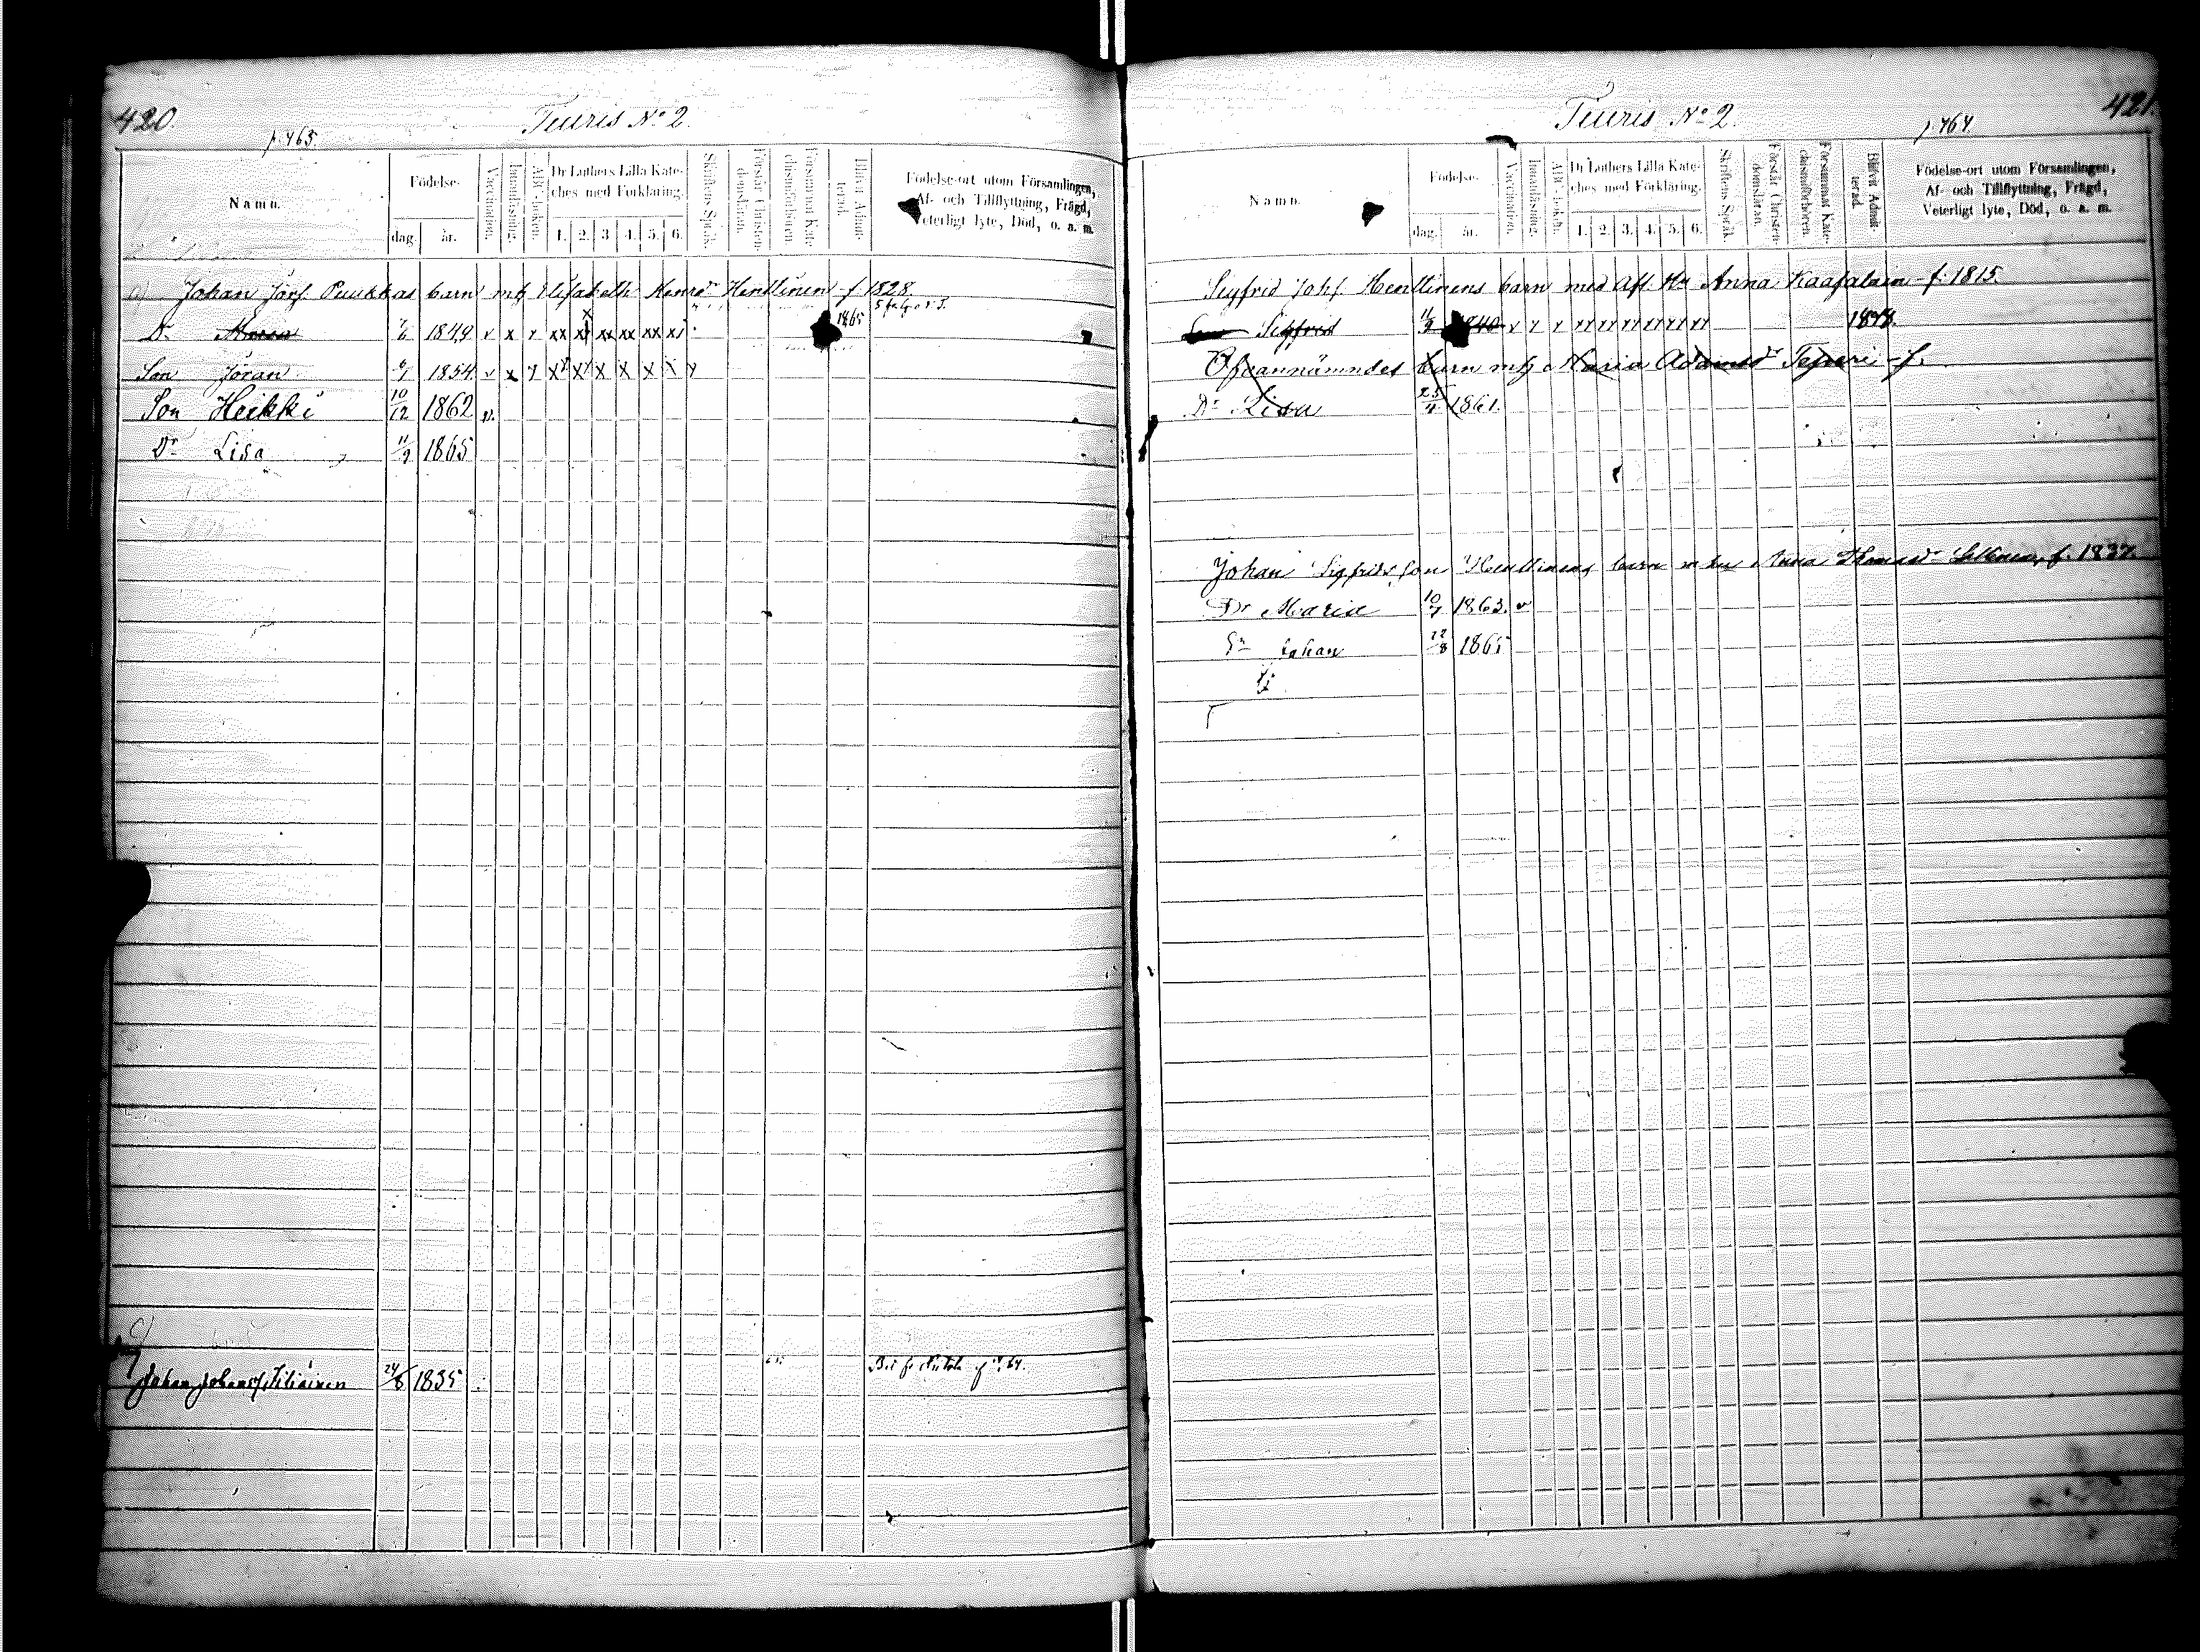 420.
Teuris No 2.
p. 465.
Namn.
Födelse-
dag.
år.
Vaccination.
Innanläsning.
ABC-boken.
Dr Luthers Lilla Kate-
ches med Förklaring.
1. 2. 3. 4. 5. 6.
Skriftens Språk.
Förstår Christen-
domsläran.
Försummat Kate-
chismiförhören.
Blifvit Admit-
terad.
Födelse-ort utom Församlingen,
Af- och Tillflyttning, Frägd,
Veterligt lyte, Död, o. a. m.
Johan Jörs. Puukkas barn mh Elisabeth Henrsdr Henttinen f 1828
Dr Maria 1849 v x x xx xx xx xx xx 1865
Son Jöran 1854 v x x x x x x
Son Heikki 10/12 1862 v.
Dr Lisa 11/9 1865
Johan Johans. 24/6 1835
421.
Teuris No 2.
p. 464.
Namn.
Födelse.
dag.
år.
Vaccination.
Innanläsning.
ABC-boken.
Dr Luthers Lilla Kate-
ches med Förklaring.
1. 2. 3. 4. 5. 6.
Skriftens Språk.
Förstår Christen-
domsläran.
Försummat Kate-
chismiförhören.
Blifvit Admit-
terad.
Födelse-ort utom Församlingen,
Af- och Tillflyttning, Frägd,
Veterligt lyte, Död, o. a. m.
Sigfrid Johs. Henttinens barn med Afl. Hu Anna Kaasalain f. 1815.
Son Sigfrid 1840
Ofvannämndes barn mh Maria Adamsdr f.
Dr Lisa 25/4 1861.
Johan Sigfridsson Henttinens barn m hu Anna Thomasdr f. 1837.
Dr Maria 10/7 1863. v
Sn Johan 22/8 1865